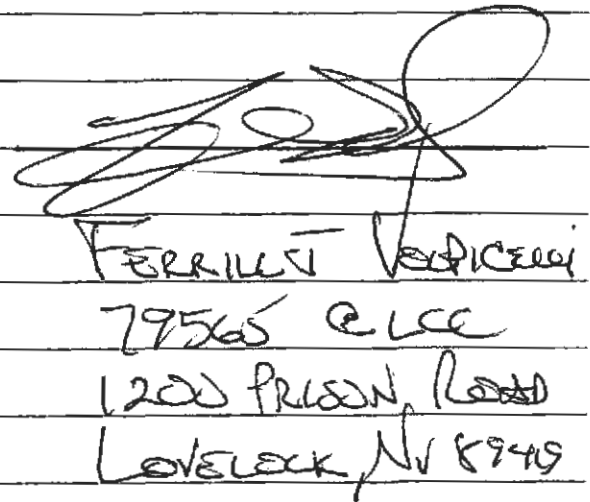 FERRILL J VOLPICELLI
79565 @ LCC
1200 PRISON ROAD
LOVELOCK, NV 89419